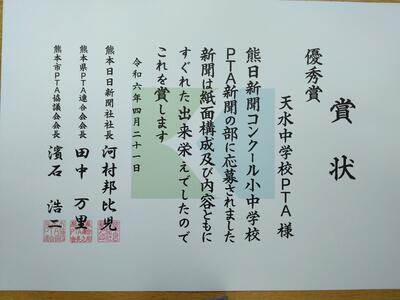 賞状
優秀賞
天水中学校PTA 様
熊日新聞コンクール小中学校
PTA新聞の部に応募されました
新聞は紙面構成及び内容ともに
すぐれた出来栄えでしたので
これを賞します
令和六年四月二十一日
熊本日日新聞社社長 河村邦比児
熊本県PTA連合会会長 田中万里
熊本市PTA協議会会長 濱石浩二